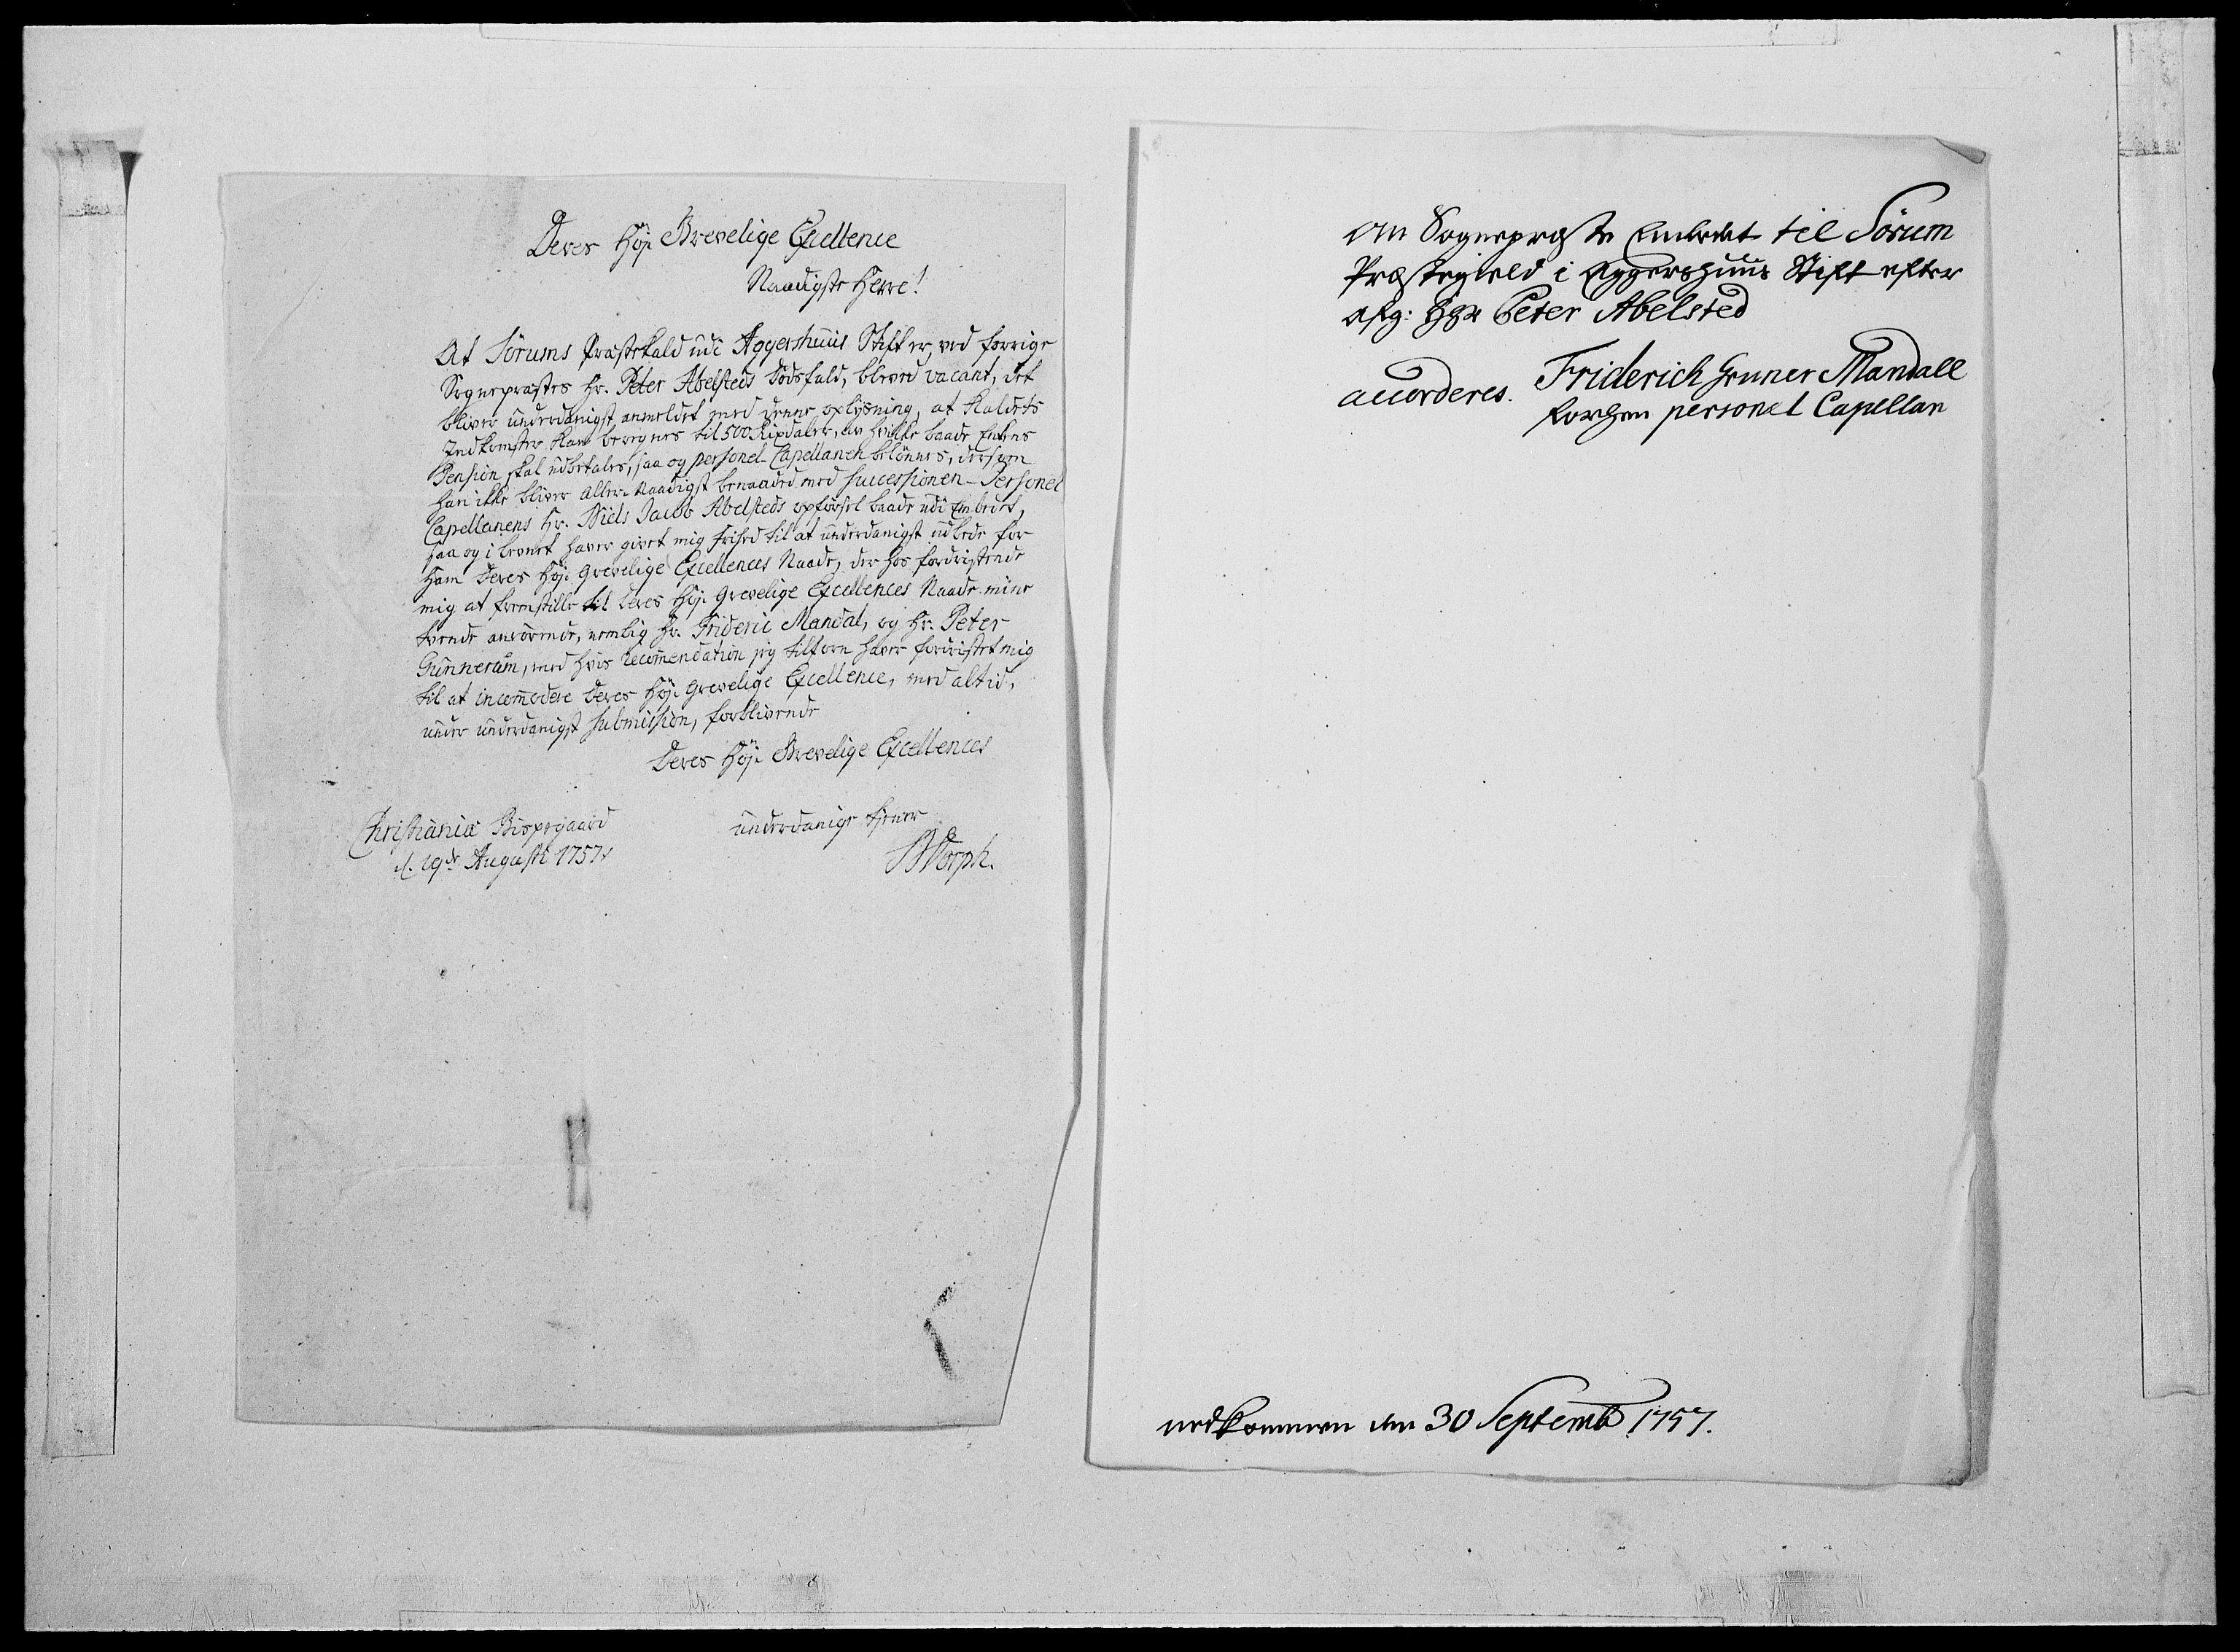 Deres Höÿ Grevelige Excellence
Naadigste Herre!
At Sörums Præstekald udi Aggershuus Stift er, ved forrige
Sognepræstes Hr. Peter Abelsteds dödsfald, bleved vacant, det
bliver underdanigst anmeldet med denne oplysning, at Kaldets
Indkomster kan beregnes til 500 Rixdaler, av hvilke baade Enkens
Pension skal udbetales, saa og personel-Capellanen belönnes, dersom
han ikke bliver Aller-Naadigst benaaded med successionen - Personel
Capellanens Hr. Niels Jacob Abelsteds opförsel baade udi Embedet,
saa og i levnet haver givet mig frihed til at underdanigst udbede for
ham Deres Höÿ Grevelige Excellences Naade, der hos fordristende
mig at fremstille til Deres Höÿ Grevelige Excellences Naade mine
tvende anvörende, nemlig Hr. Frideric Mandal, og Hr. Peter
Gunnerum, med hvis recommendation jeg tilforn haver fordristet mig
til at incommodere Deres Höÿ Grevelige Excellence, med altid,
under underdanigst submission, forblivende
Deres Höÿ Grevelige Excellences
Christianiæ Bispegaard
d. 19de Augusti 1757.
underdanige tjener
Dorph.
An Sognepræste Embedet til Sörum
Præstegield i Aggershuus Stift efter
afg: Hr Peter Abelsted
accorderes. Friderich Gruner Mandall
forhen personel Capellan
nedkommen den 30 Septemb 1757.